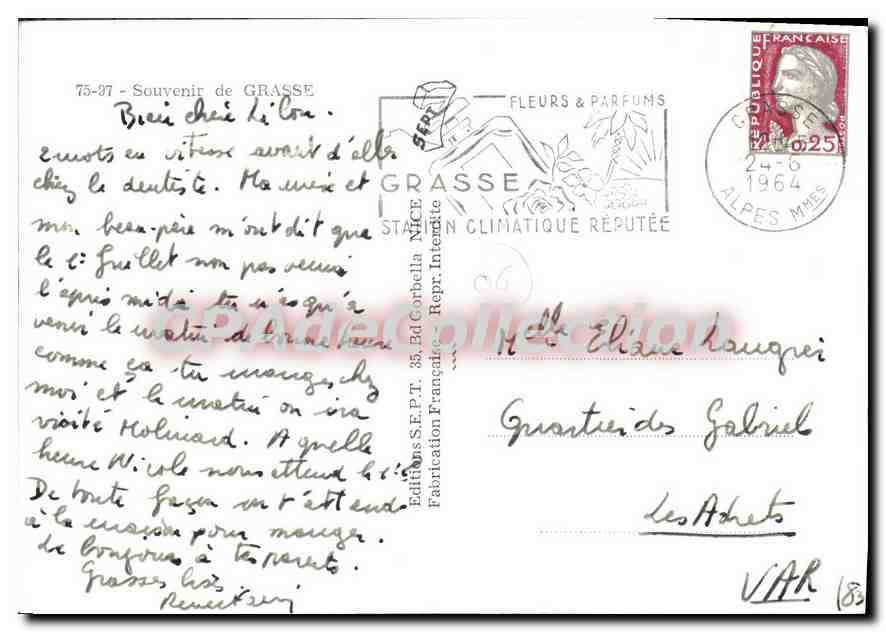 75-27 - Souvenir de GRASSE
Bien chère Lilou.
2 mots en vitesse avant d'aller
chez le dentiste. Ma mère et
mon beau-père m'ont dit que
le 1er Juillet non pas venir
l'après midi tu n'as qu'à
venir le matin de bonne heure
comme ça tu manges chez
moi et le matin on ira
visité Molinard. A quelle
heure Nicole nous attend le 1er
De toute façon on t'attend
à la maison pour manger.
Le bonjour à tes parents.
Grosses bises
SEPT
FLEURS & PARFUMS
GRASSE
STATION CLIMATIQUE RÉPUTÉE
REPUBLIQUE FRANÇAISE
POSTES
0,25
GRASSE
24-6
1964
ALPES MMES
Editions S.E.P.T. 35, Bd Gorbella NICE
Fabrication Française - Repr. Interdite
06
CPAdeCollection
Melle Eliane
Quartier des Gabriel
Les Adrets
VAR (83